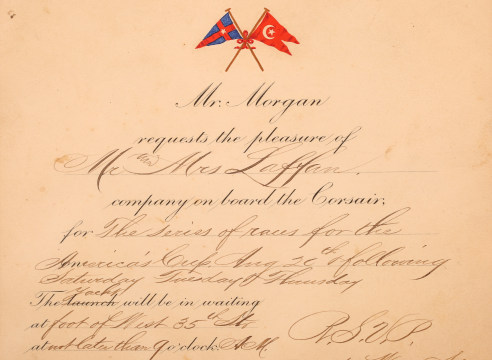 Mr. Morgan
requests the pleasure of
Mr and Mrs Laffan.
company on board the Corsair,
for The series of races for the
America's Cup, Aug 20th & following
Saturday Tuesday & Thursday
The launch Yacht will be in waiting
at foot of West 35th St.
at not later than 9 o'clock A.M.
R.S.V.P.